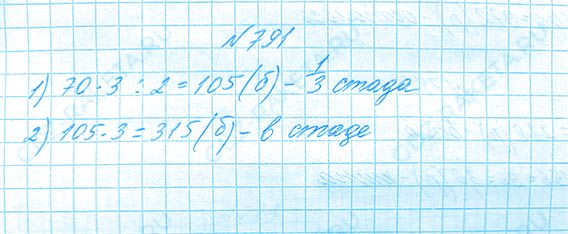 №791
1) 70·3:2=105(б) – 1/3 стада
2) 105·3=315(б) – в стаде